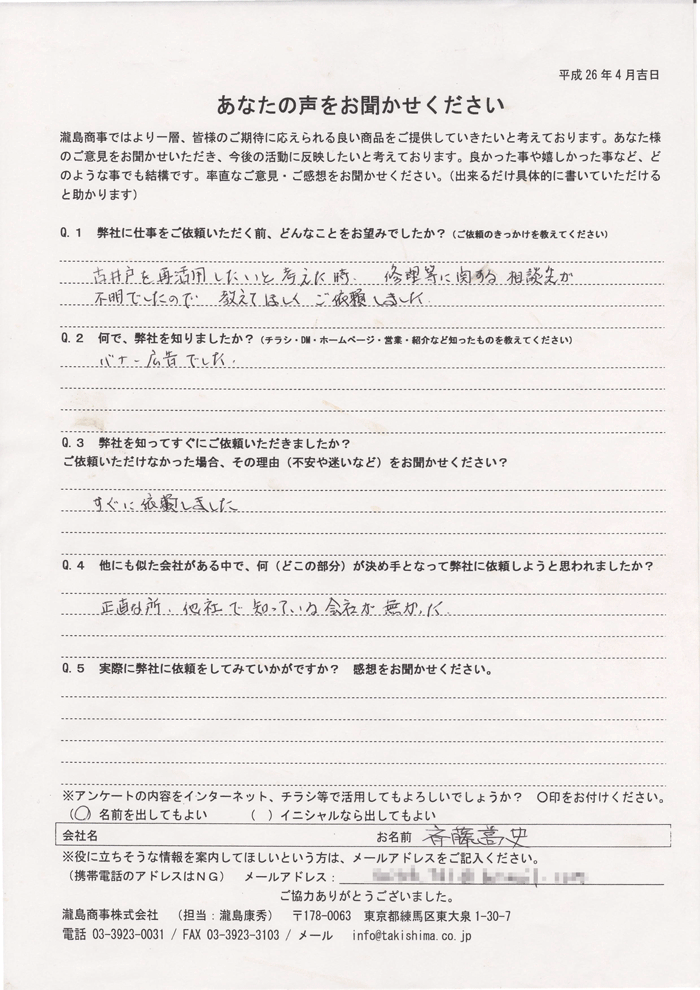 平成26年4月吉日
あなたの声をお聞かせください
瀧島商事ではより一層、皆様のご期待に応えられる良い商品をご提供していきたいと考えております。あなた様
のご意見をお聞かせいただき、今後の活動に反映したいと考えております。良かった事や嬉しかった事など、ど
のような事でも結構です。率直なご意見・ご感想をお聞かせください。(出来るだけ具体的に書いていただける
と助かります)
Q.1 弊社に仕事をご依頼いただく前、どんなことをお望みでしたか?(ご依頼のきっかけを教えてください)
古井戸を再活用したいと考えた時、修理等に関する相談先が
不明でしたので 教えてほしく ご依頼しました.
Q.2 何で、弊社を知りましたか?(チラシ・DM・ホームページ・営業・紹介など知ったものを教えてください)
バナー広告でした.
Q.3 弊社を知ってすぐにご依頼いただきましたか?
ご依頼いただけなかった場合、その理由(不安や迷いなど)をお聞かせください?
すぐに依頼しました
Q.4 他にも似た会社がある中で、何(どこの部分)が決め手となって弊社に依頼しようと思われましたか?
正直な所、他社で知っている会社が無かった.
Q.5 実際に弊社に依頼をしてみていかがですか? 感想をお聞かせください。
※アンケートの内容をインターネット、チラシ等で活用してもよろしいでしょうか? ○印をお付けください。
(○)名前を出してもよい ( )イニシャルなら出してもよい
会社名 お名前 斉藤嵩史
※役に立ちそうな情報を案内してほしいという方は、メールアドレスをご記入ください。
(携帯電話のアドレスはNG) メールアドレス:
ご協力ありがとうございました。
瀧島商事株式会社 (担当:瀧島康秀) 〒178-0063 東京都練馬区東大泉1-30-7
電話 03-3923-0031 / FAX 03-3923-3103 / メール info@takishima.co.jp